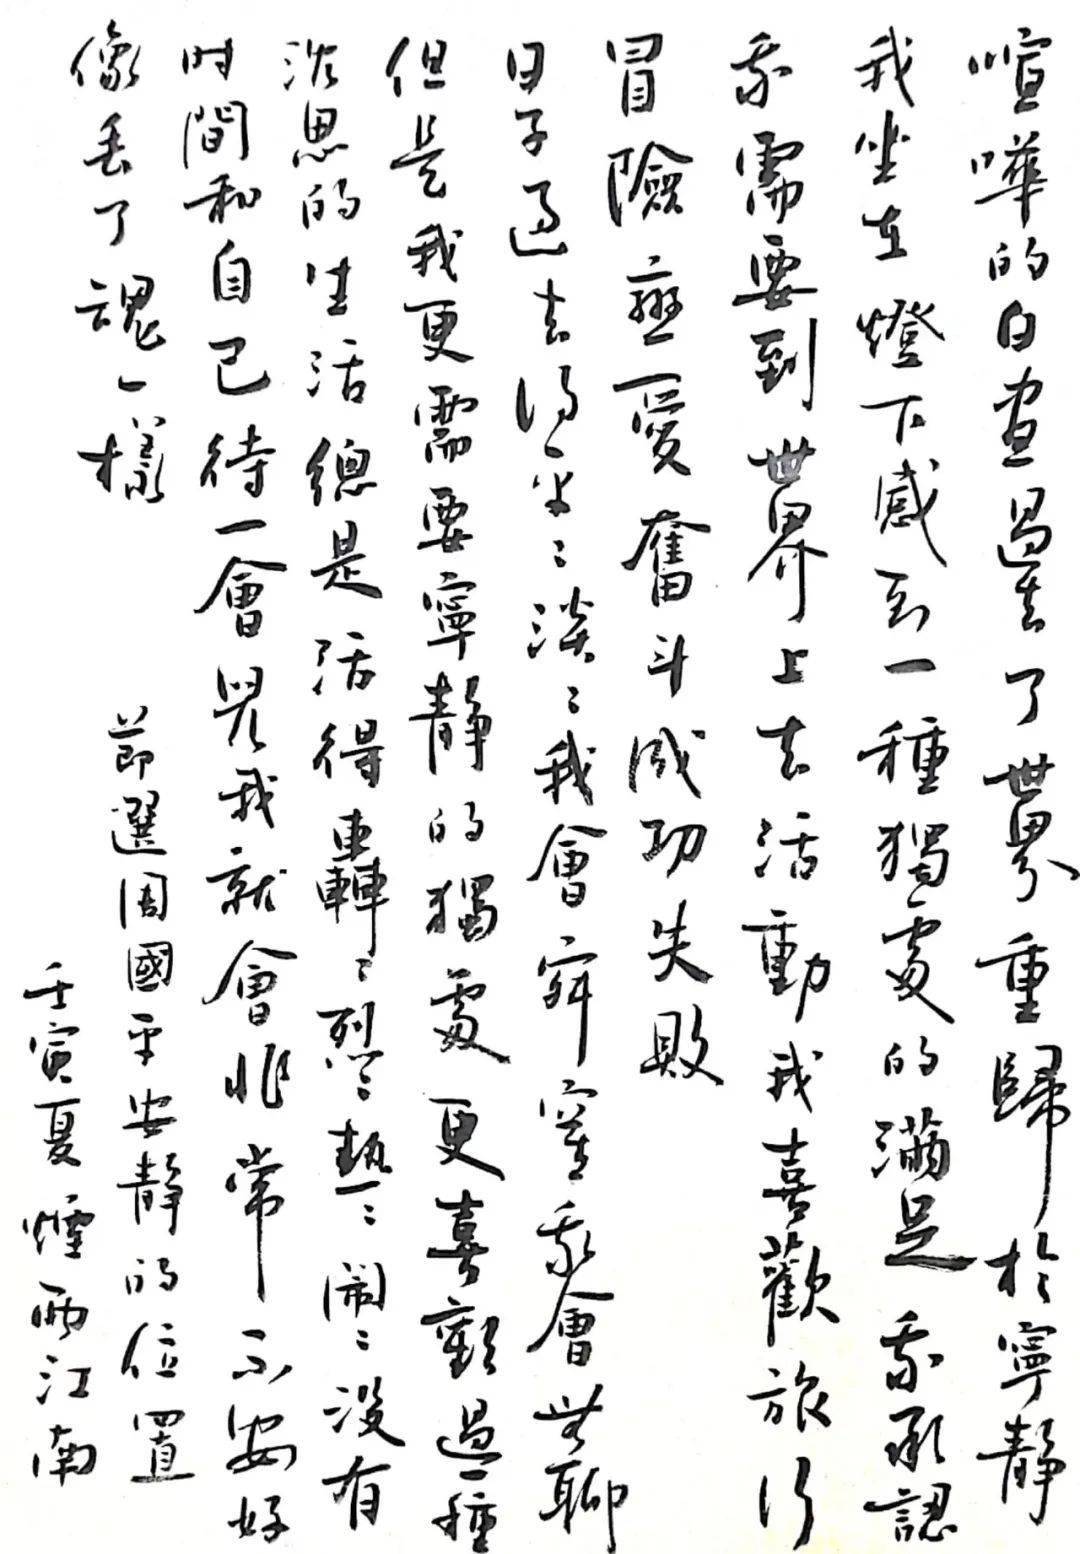 喧嘩的白晝過去了世界重歸於寧靜
我坐在燈下感到一種獨處的滿足我承認
我需要到世界上去活動我喜歡旅行
冒險戀愛奮斗成功失敗
日子過去得平平淡淡我會寂寞我會無聊
但是我更需要寧靜的獨處更喜歡過一種
沈思的生活總是活得轟轟烈烈熱熱鬧鬧沒有
时間和自己待一會兒我就會非常不安好
像丢了魂一樣
節選周國平安靜的位置
壬寅夏煙雨江南